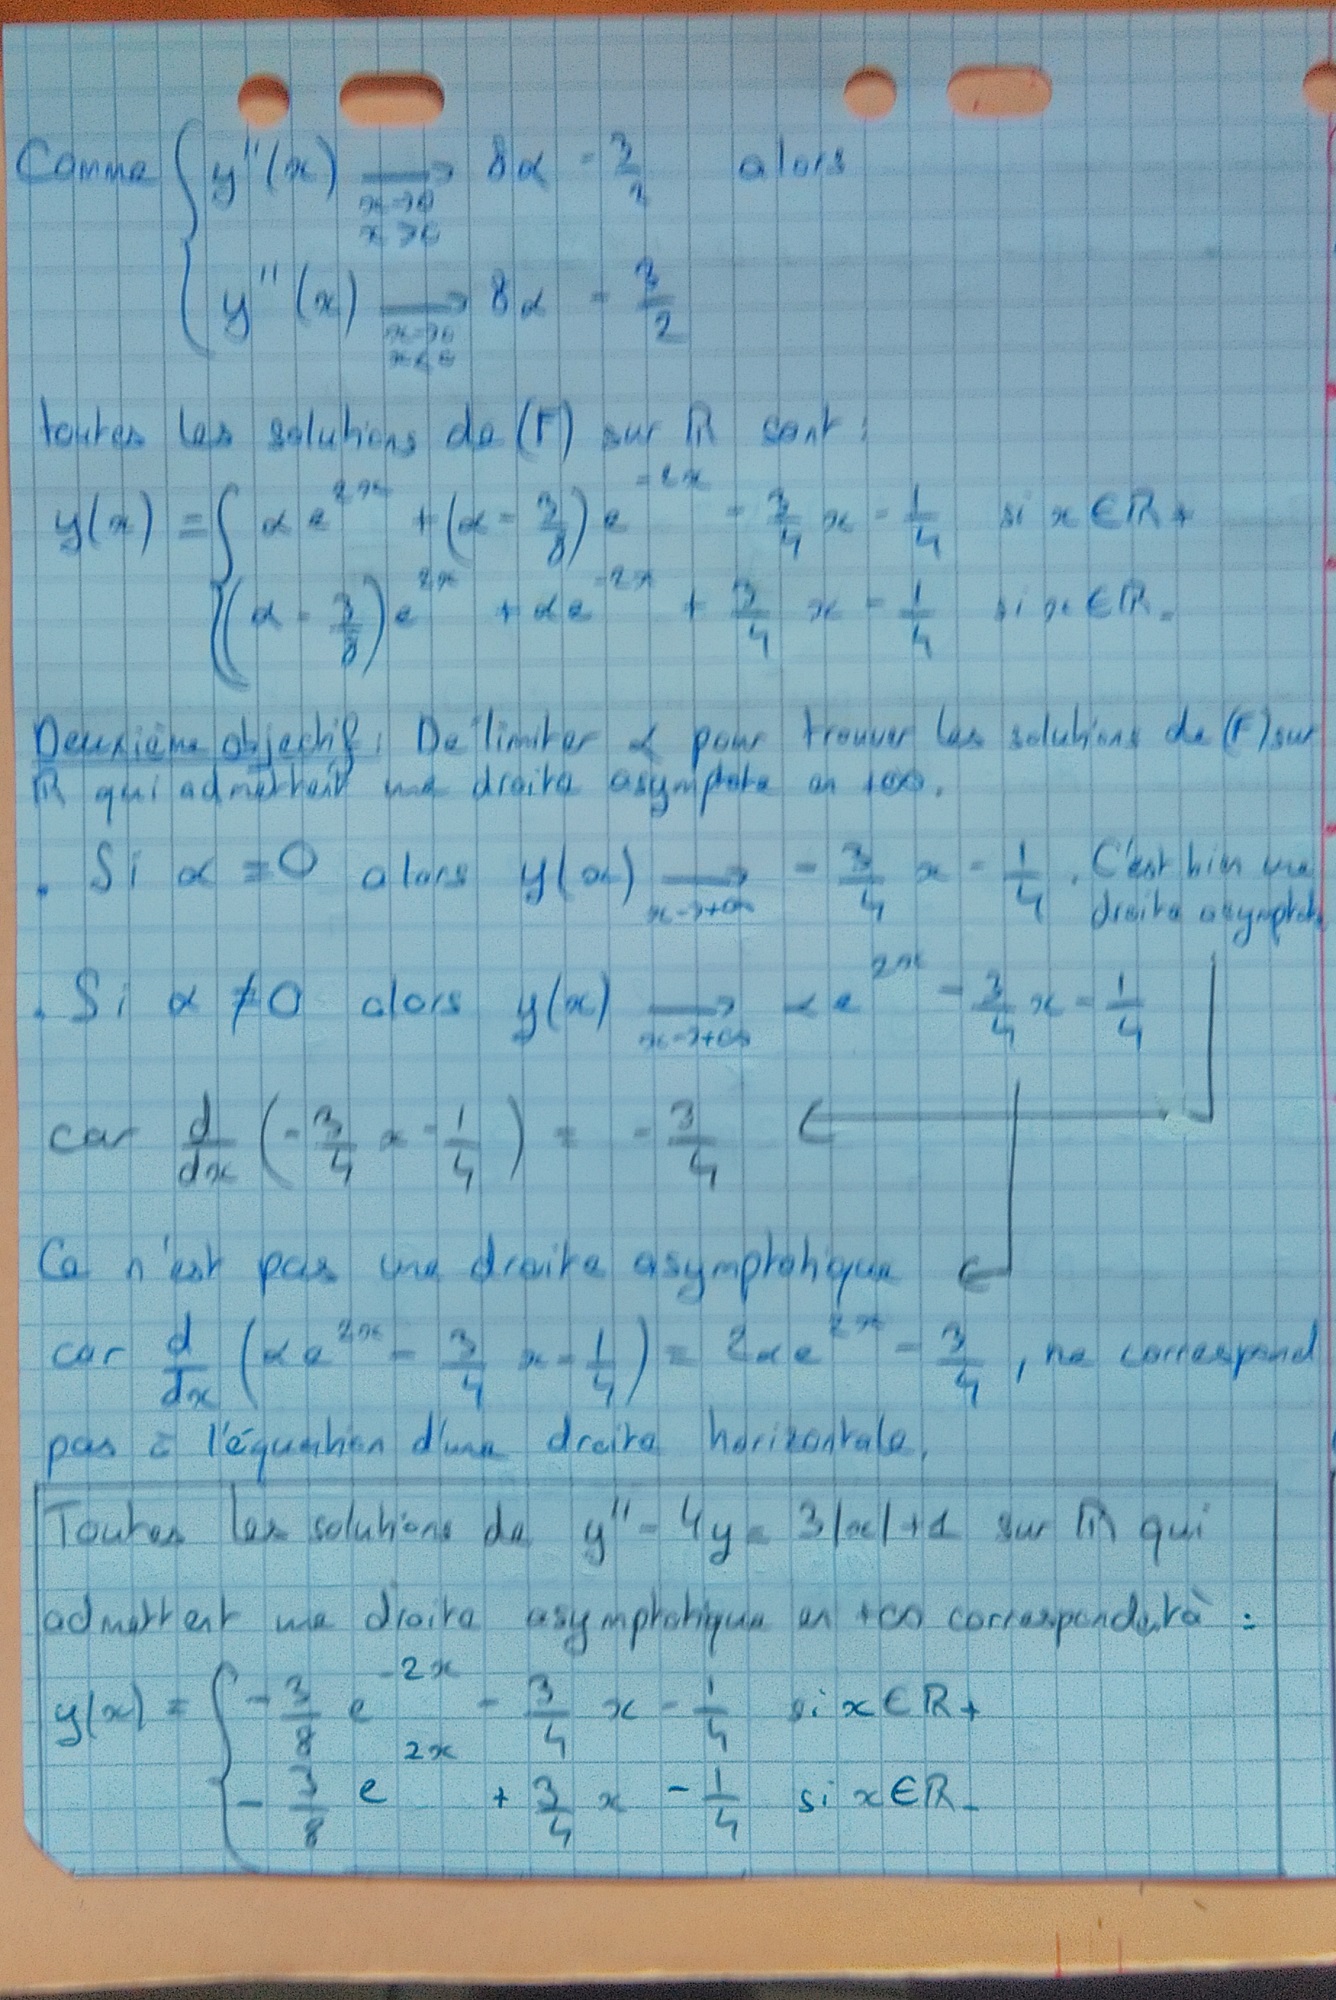 Comme { y''(x) ⟶ 8α - 3/2 alors
x→0
x>0
y''(x) ⟶ 8α - 3/2
x→0
x<0
toutes les solutions de (F) sur ℝ sont :
y(x) = { α e^{2x} + (α - 3/8) e^{-2x} - 3/4 x - 1/4 si x ∈ ℝ+
(α - 3/8) e^{2x} + α e^{-2x} + 3/4 x - 1/4 si x ∈ ℝ-
Deuxième objectif : Délimiter α pour trouver les solutions de (F) sur
ℝ qui admettent une droite asymptote en +∞.
. Si α = 0 alors y(x) ⟶ - 3/4 x - 1/4. C'est bien une
x→+∞ droite asymptote
. Si α ≠ 0 alors y(x) ⟶ α e^{2x} - 3/4 x - 1/4
x→+∞
car d/dx (- 3/4 x - 1/4) = - 3/4
Ce n'est pas une droite asymptotique
car d/dx (α e^{2x} - 3/4 x - 1/4) = 2α e^{2x} - 3/4, ne correspond
pas à l'équation d'une droite horizontale.
Toutes les solutions de y'' - 4y = 3|x| + 1 sur ℝ qui
admettent une droite asymptotique en +∞ correspondent à :
y(x) = { - 3/8 e^{-2x} - 3/4 x - 1/4 si x ∈ ℝ+
- 3/8 e^{2x} + 3/4 x - 1/4 si x ∈ ℝ-